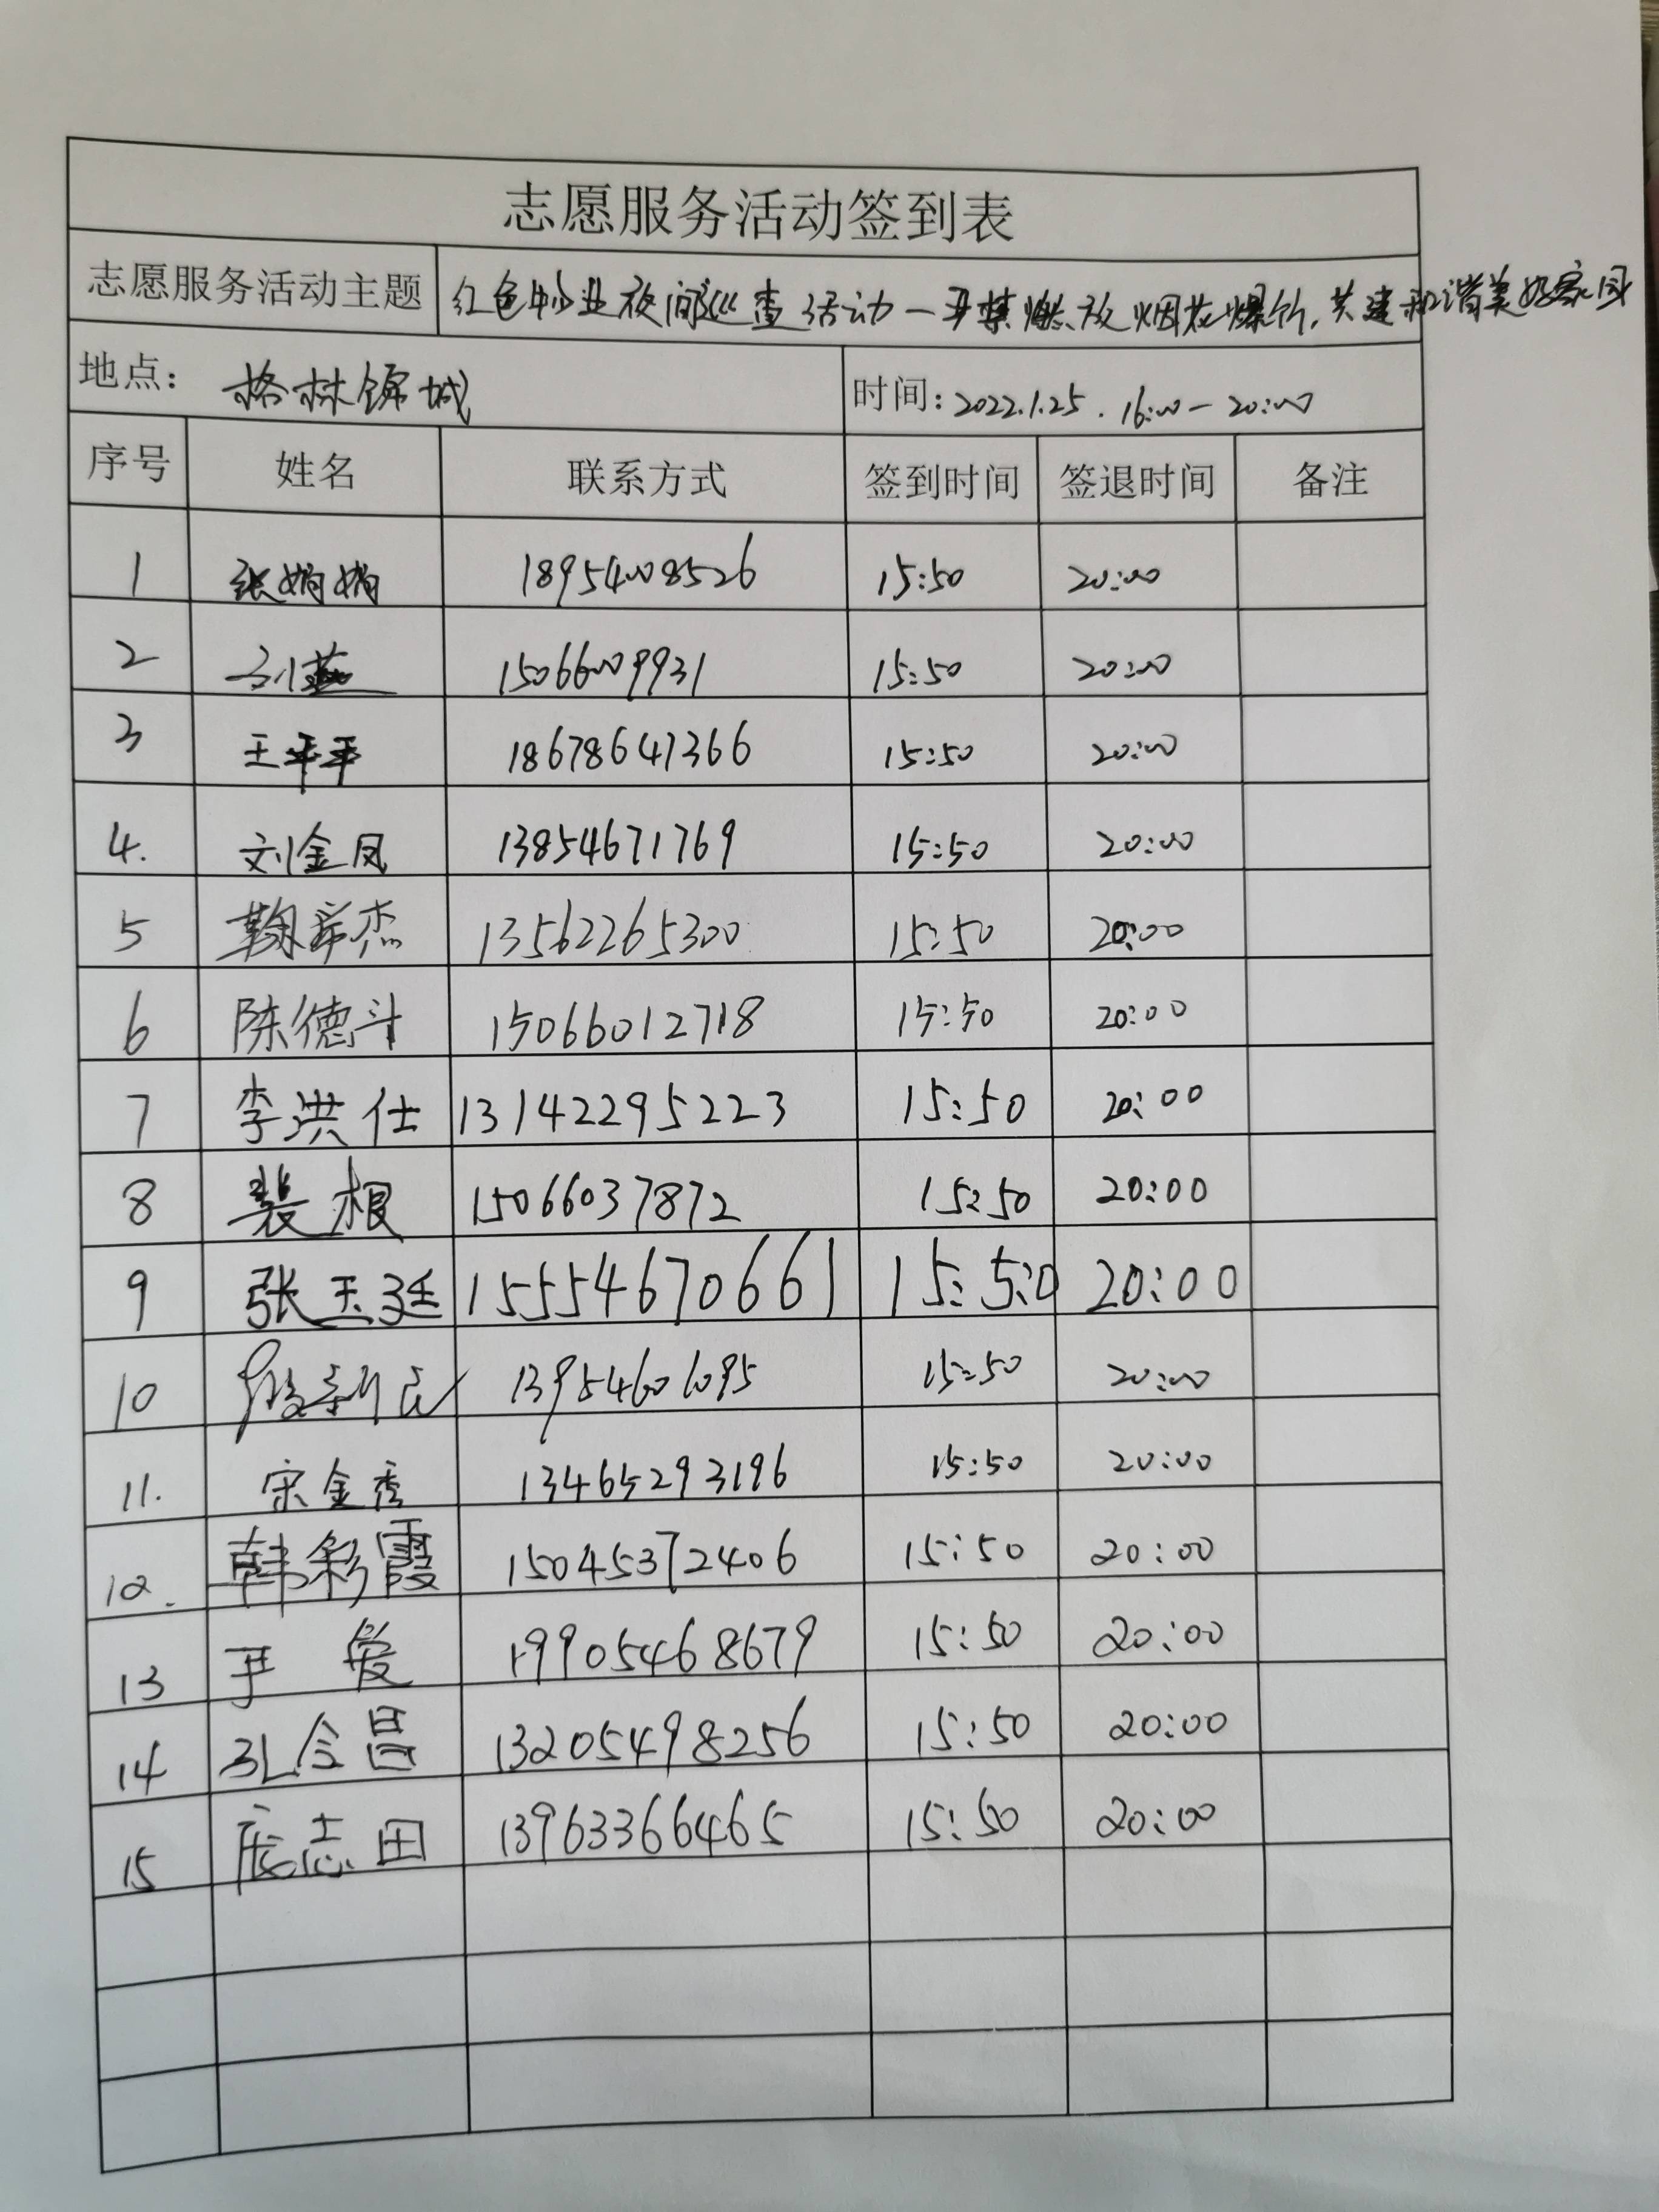 志愿服务活动签到表
志愿服务活动主题 红色物业夜间巡查活动—严禁燃放烟花爆竹,共建和谐美好家园
地点: 格林锦城 时间: 2022.1.25. 16:00—20:00
序号 姓名 联系方式 签到时间 签退时间 备注
1 张娟娟 18954008526 15:50 20:00
2 刘燕 15066009931 15:50 20:00
3 王平平 18678641366 15:50 20:00
4. 刘金凤 13854671769 15:50 20:00
5 13562265300 15:50 20:00
6 陈德斗 15066012718 15:50 20:00
7 李洪仕 13142295223 15:50 20:00
8 裴根 15066037872 15:50 20:00
9 张玉廷 15554670661 15:5:0 20:00
10 13954601095 15:50 20:00
11. 宋金秀 13465293196 15:50 20:00
12. 韩彩霞 15045372406 15:50 20:00
13 尹爱 19905468679 15:50 20:00
14 孔令昌 13205498256 15:50 20:00
15 庞志田 13963366465 15:50 20:00